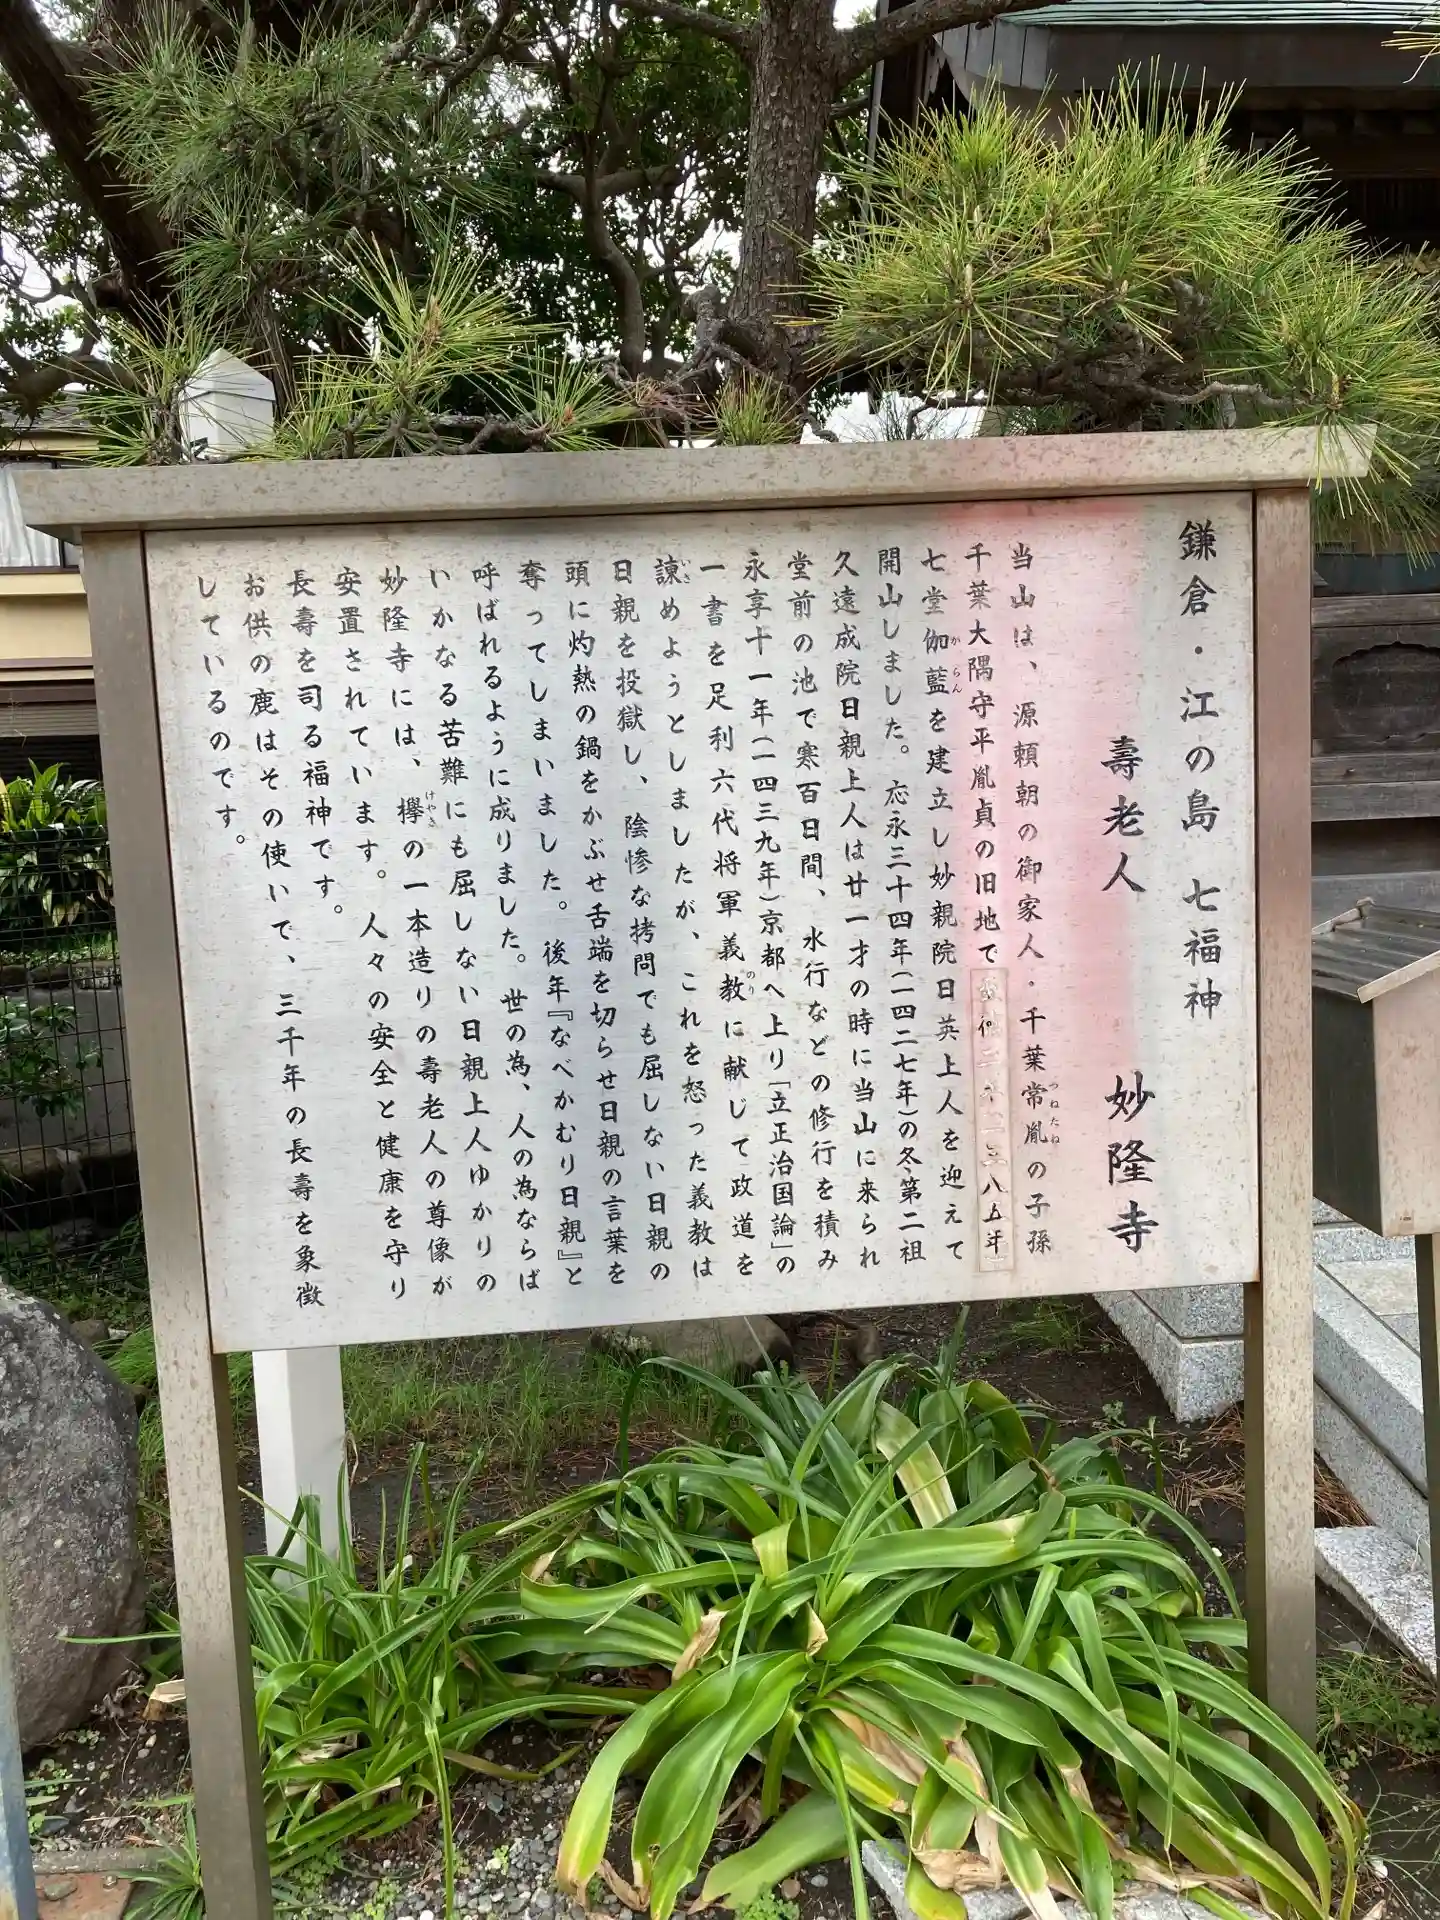 鎌倉・江の島 七福神
壽老人 妙隆寺
当山は、源頼朝の御家人・千葉常胤の子孫
千葉大隅守平胤貞の旧地で 三八五年
七堂伽藍を建立し妙親院日英上人を迎えて
開山しました。応永三十四年(一四二七年)の冬、第二祖
久遠成院日親上人は廿一才の時に当山に来られ
堂前の池で寒百日間、水行などの修行を積み
永享十一年(一四三九年)京都へ上り「立正治国論」の
一書を足利六代将軍義教に献じて政道を
諌めようとしましたが、これを怒った義教は
日親を投獄し、陰惨な拷問でも屈しない日親の
頭に灼熱の鍋をかぶせ舌端を切らせ日親の言葉を
奪ってしまいました。後年『なべかむり日親』と
呼ばれるように成りました。世の為、人の為ならば
いかなる苦難にも屈しない日親上人ゆかりの
妙隆寺には、欅の一本造りの壽老人の尊像が
安置されています。人々の安全と健康を守り
長壽を司る福神です。
お供の鹿はその使いで、三千年の長壽を象徴
しているのです。